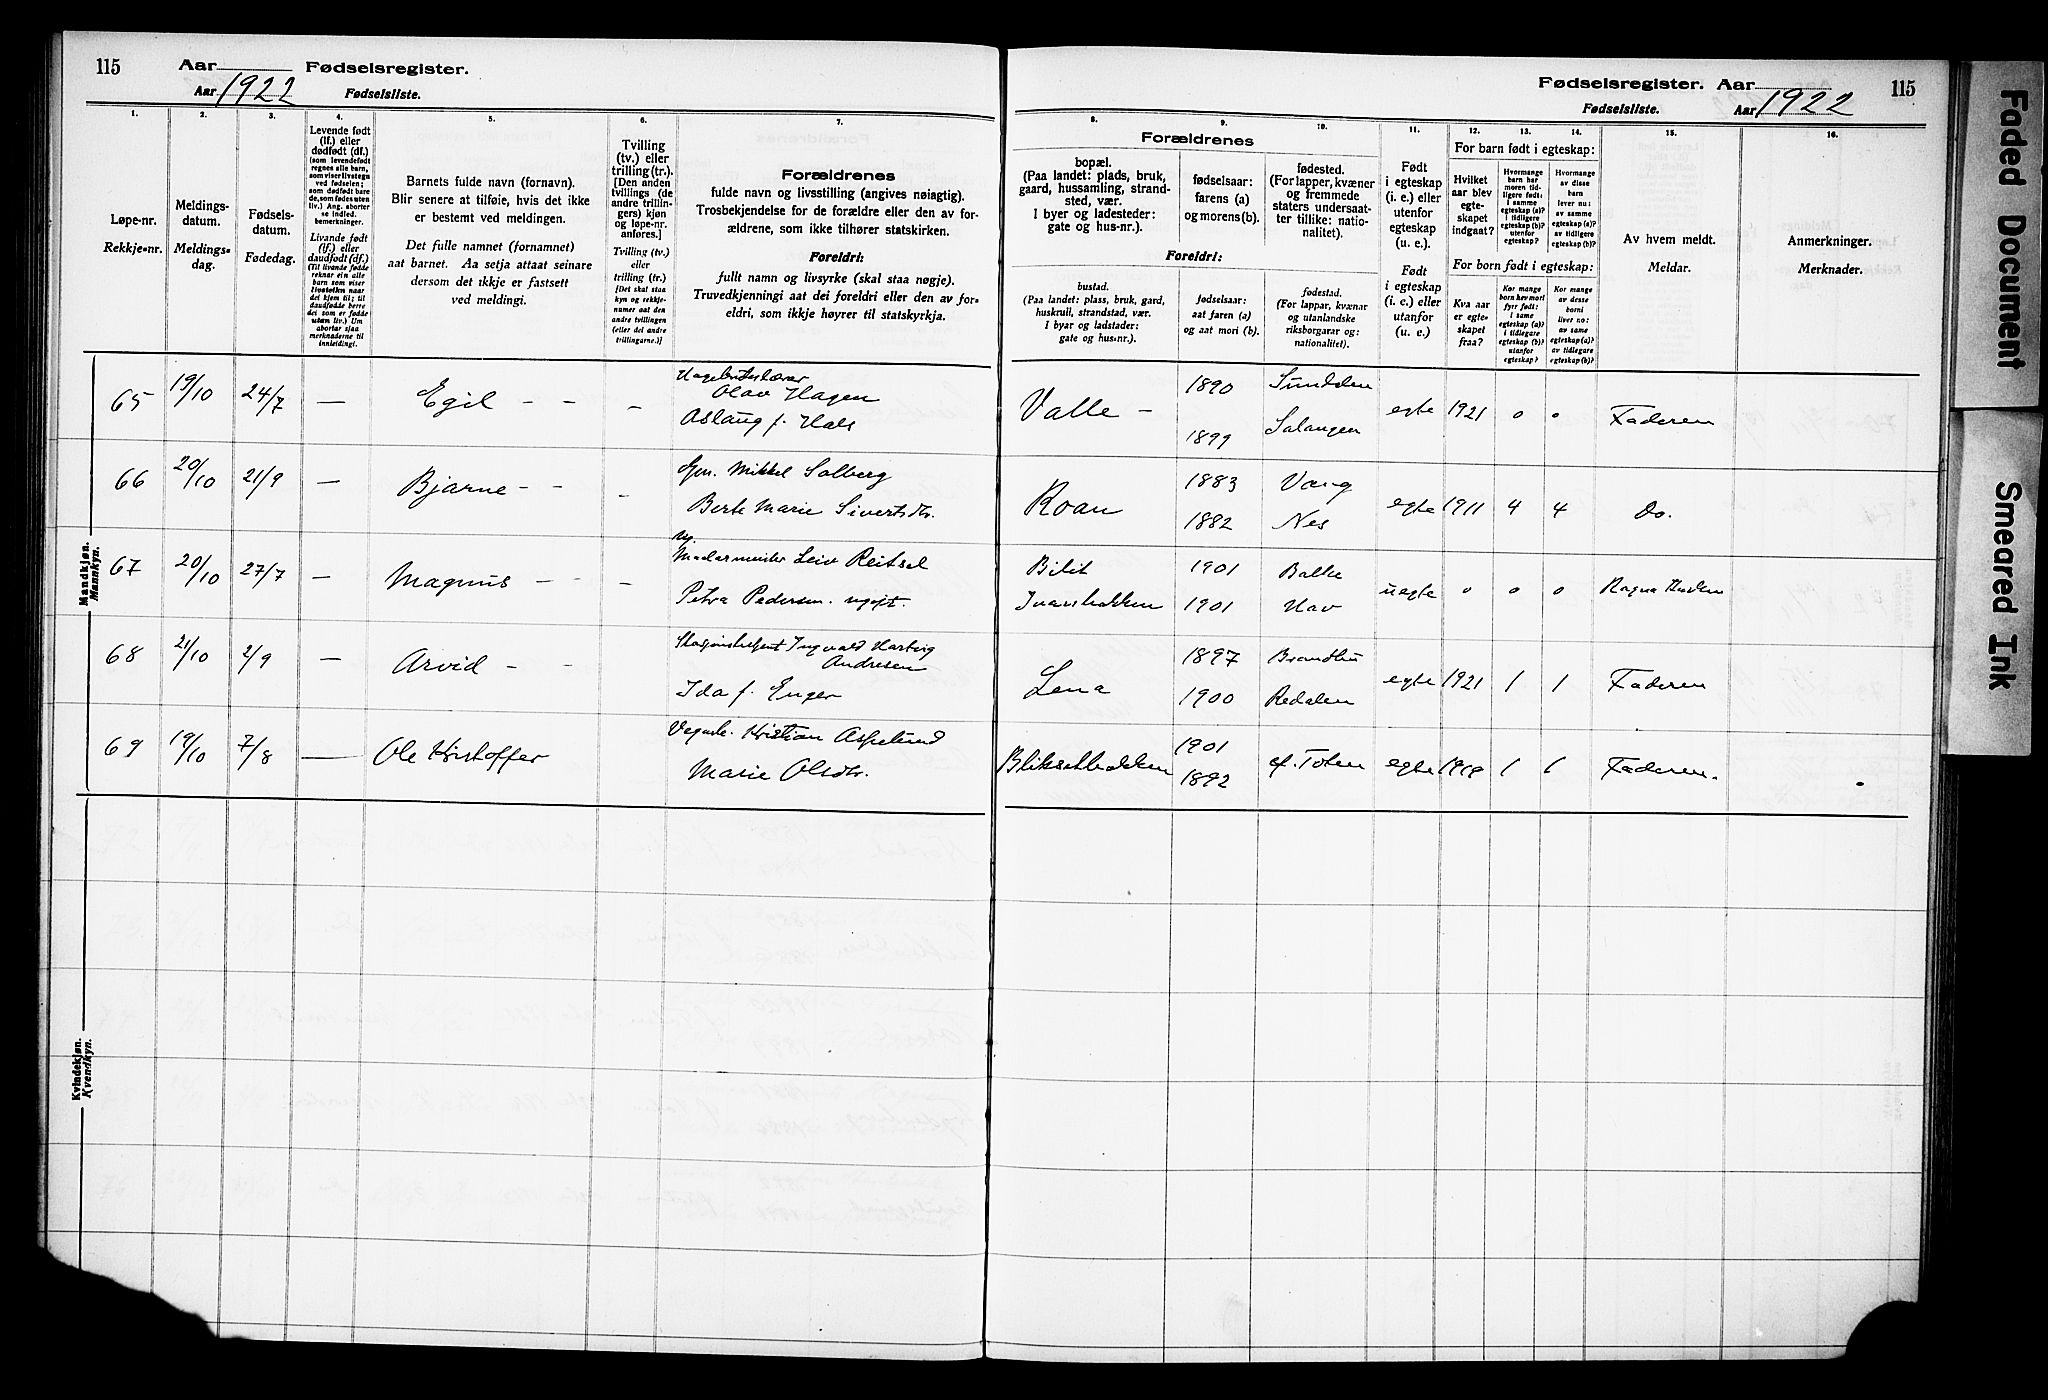 115
Aar Fødselsregister.
Aar 1922 Fødselsliste.
Fødselsregister. Aar
115
Fødselsliste. Aar 1922
1.
Løpe-nr.
Rekkje-nr.
2.
Meldings-
datum.
Meldings-
dag.
3.
Fødsels-
datum.
Fødedag.
4.
Levende født
(lf.) eller
dødfødt (df.)
(som levendefødt
regnes alle barn,
som viser livstegn
ved fødselen;
som dødfødt bare
de, som fødes uten
liv.) Ang. aborter
se indled.
bemerkninger.
Livande født
(lf.) eller
daudfødt (df.)
(Til livande fødde
reknar ein alle
barn som viser
livsteikn naar
dei kjem til; til
daudfødde berre
dei som er fødde
utan liv.) Um
abortar sjaa
merknaderne til
innleidingi.
5.
Barnets fulde navn (fornavn).
Blir senere at tilføie, hvis det ikke
er bestemt ved meldingen.
Det fulle namnet (fornamnet)
aat barnet. Aa setja attaat seinare
dersom det ikkje er fastsett
ved meldingi.
6.
Tvilling
(tv.) eller
trilling (tr.).
[Den anden
tvillings (de
andre trillin-
gers) kjøn
og løpe-nr.
anføres.]
Tvilling (tv.)
eller
trilling (tr.)
[Det skal staa
kyn og rekkje-
numer aat den
andre tvillingen
(eller dei andre
trillingarne.)]
7.
Forældrenes
fulde navn og livsstilling (angives nøiagtig).
Trosbekjendelse for de forældre eller den av for-
ældrene, som ikke tilhører statskirken.
Foreldri:
fullt namn og livsyrke (skal staa nøgje).
Truvedkjenningi aat dei foreldri eller den av for-
eldri, som ikkje høyrer til statskyrkja.
8.
Forældrenes
bopæl.
(Paa landet: plads, bruk,
gaard, hussamling, strand-
sted, vær.
I byer og ladesteder:
gate og hus-nr.).
Foreldri:
bustad.
(Paa landet: plass, bruk, gard,
huskrull, strandstad, vær.
I byar og ladstader:
gate og hus-nr.).
9.
fødselsaar:
farens (a)
og morens (b).
fødselsaar:
aat faren (a)
og aat mori (b).
10.
fødested.
(For lapper, kvæner
og fremmede
staters undersaat-
ter tillike: natio-
nalitet).
fødestad.
(For lappar, kvænar
og utanlandske
riksborgarar og:
nationalitet).
11.
Født
i egteskap
(i. e.) eller
utenfor
egteskap
(u. e.).
Født
i egteskap
(i. e.) eller
utanfor
(u. e.)
For barn født i egteskap:
For born født i egteskap:
12.
Hvilket
aar blev
egte-
skapet
indgaat?
Kva aar
er egte-
skapet
fraa?
13.
Hvormange
barn har
moren tid-
ligere født:
i samme
egteskap (a)?
i tidligere
egteskap (b)?
utenfor
egteskap?
Kor mange
born hev mori
fyrr født:
i same
egteskap (a)?
i tidlegare
egteskap (b)?
utanfor
egteskap?
14.
Hvormange
av disse
barn
lever nu:
av samme
egteskap (a)?
av tidligere
egteskap (b)?
Kor mange
av desse
borni
liver no:
av same
egteskap (a)?
av tidlegare
egteskap (b)?
15.
Av hvem meldt.
Meldar.
16.
Anmerkninger.
Merknader.
Mandkjøn.
Mannkyn.
65 19/10 24/7 — Egil - - - Olav Hagen
Aslaug f. Hals
Valle - 1890
1899 Salangen egte 1921 0 0 Faderen
66 20/10 21/9 — Bjarne - - - Gm. Mikkel Solberg
Berte Marie Sivertsdtr.
Roan 1883 Vang
1882 Nes egte 1911 4 4 Do.
67 20/10 27/7 — Magnus - - - Leiv Reitsel
Petra Pedersen. ugift.
Bilit 1901 Balke
1901 uegte 0 0 0 Ragna
68 21/10 2/9 — Arvid - - Ingvald Hartvig
Andresen
Ida f. Enger
Lena 1897 Brandbu
1900 Redalen egte 1921 1 1 Faderen
69 19/10 7/8 — Ole Kristoffer Kristian Aspelund
Marie Olsdtr.
1901
1892 Toten egte 1918 1 1 Faderen.
Kvindekjøn.
Kvendkyn.
Faded Document
Smeared Ink